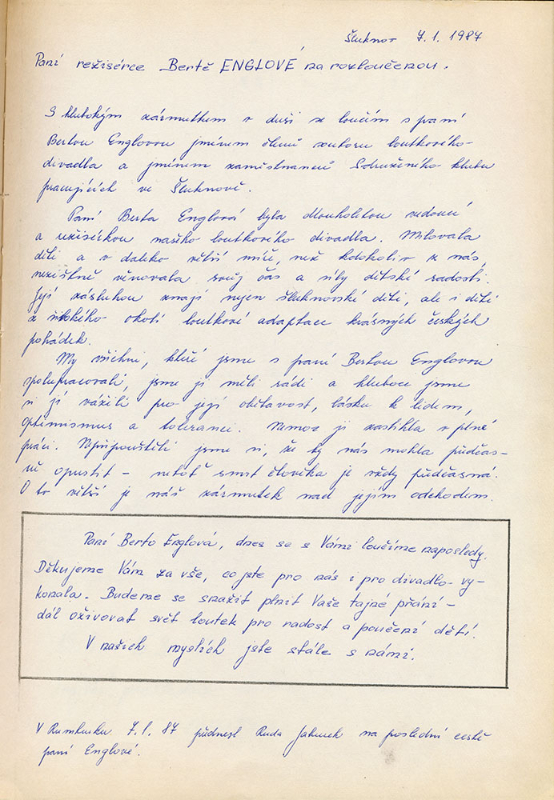 Šluknov 7.1.1987
Paní režisérce Bertě ENGLOVÉ na rozloučenou.
S hlubokým zármutkem v duši se loučím s paní
Bertou Englovou jménem členů souboru loutkového-
divadla a jménem zaměstnanců Sdruženého klubu
pracujících ve Šluknově.
Paní Berta Englová byla dlouholetou vedoucí
a režisérkou našeho loutkového divadla. Milovala
děti a v daleko větší míře, než kdokoliv z nás,
nezištně věnovala svůj čas a síly dětské radosti.
Její zásluhou znají nejen šluknovské děti, ale i děti
z širokého okolí loutkové adaptace krásných českých
pohádek.
My všichni, kteří jsme s paní Bertou Englovou
spolupracovali, jsme ji měli rádi a hluboce jsme
si jí vážili pro její obětavost, lásku k lidem,
optimismus a toleranci. Nemoc ji zastihla v plné
práci. Nepřipouštěli jsme si, že by nás mohla předčas-
ně opustit - neboť smrt člověka je vždy předčasná.
O to větší je náš zármutek nad jejím odchodem.
Paní Berto Englová, dnes se s Vámi loučíme naposledy.
Děkujeme Vám za vše, co jste pro nás i pro divadlo vy-
konala. Budeme se snažit plnit Vaše tajné přání -
dál oživovat svět loutek pro radost a poučení dětí.
V našich myslích jste stále s námi.
V Rumburku 7.1.87 přednesl Ruda na poslední cestě
paní Englové.